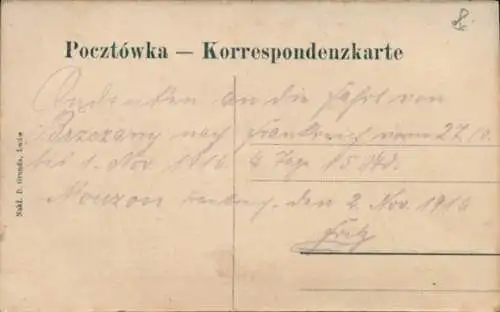 Pocztówka — Korrespondenzkarte
Andenken an die Fahrt von
Brzezany nach Frankreich vom 27/10.
bis 1. Nov 1916. 4 Tage 15 Std.
Mouzon den 2. Nov. 1916
Fritz
Nakl. D. Grunda, Lwów